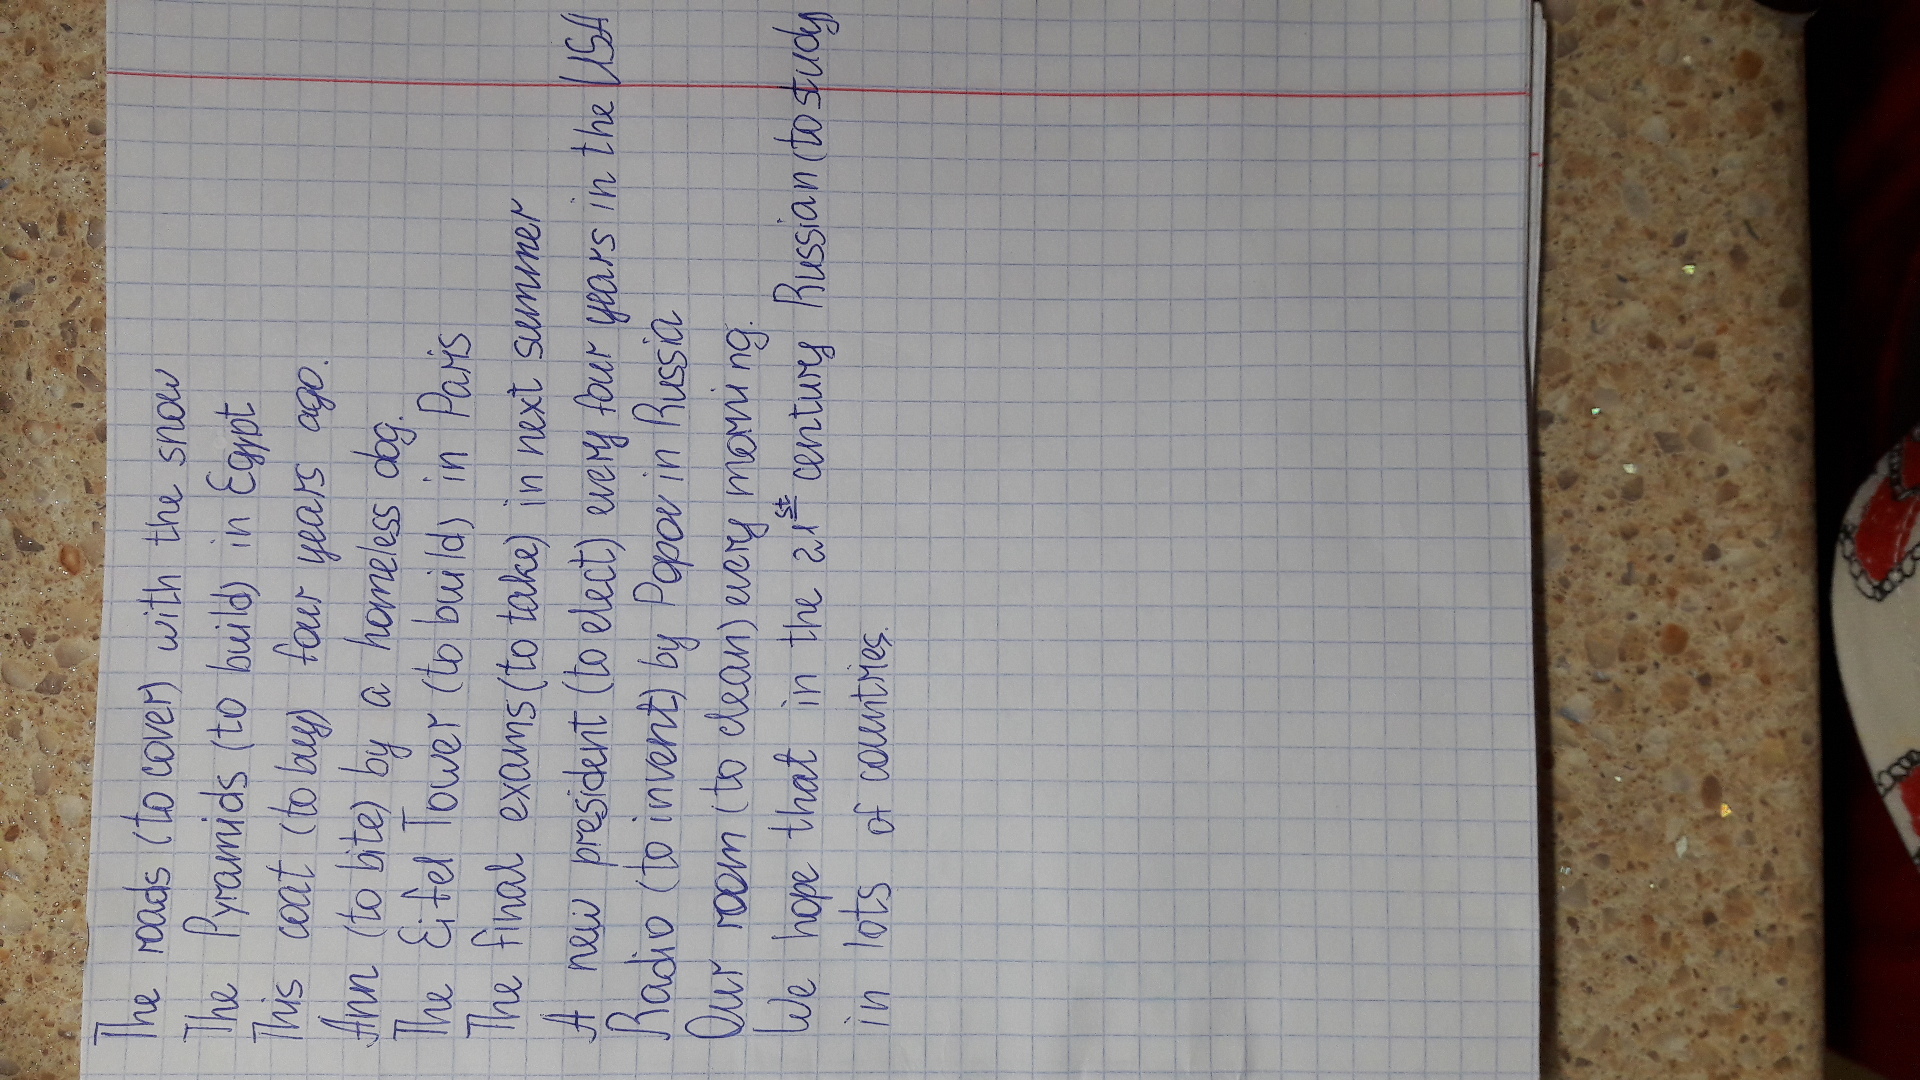 The roads (to cover) with the snow
The Pyramids (to build) in Egypt
This coat (to buy) four years ago.
Ann (to bite) by a homeless dog.
The Eifel Tower (to build) in Paris
The final exams (to take) in next summer
A new president (to elect) every four years in the USA
Radio (to invent) by Popov in Russia
Our room (to clean) every morning.
We hope that in the 21st century Russian (to study
in lots of countries.